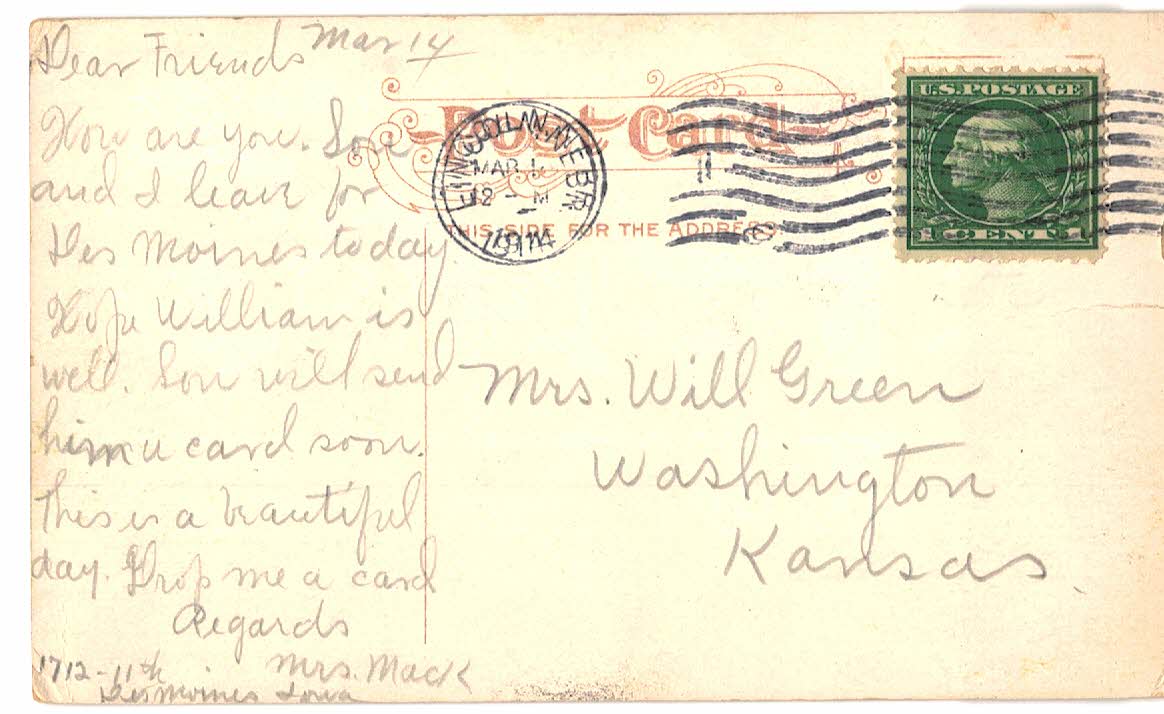 Dear Friends Mar 14
How are you. Son
and I leave for
Des Moines today
Hope William is
well. Son will send
him a card soon.
This is a beautiful
day. Drop me a card
Regards
Mrs. Mack
1712-11th
Des Moines Iowa
Post Card
THIS SIDE FOR THE ADDRESS
NEBR.
MAR 1
12 - M
1914
U.S. POSTAGE
1 CENT 1
Mrs. Will Green
Washington
Kansas